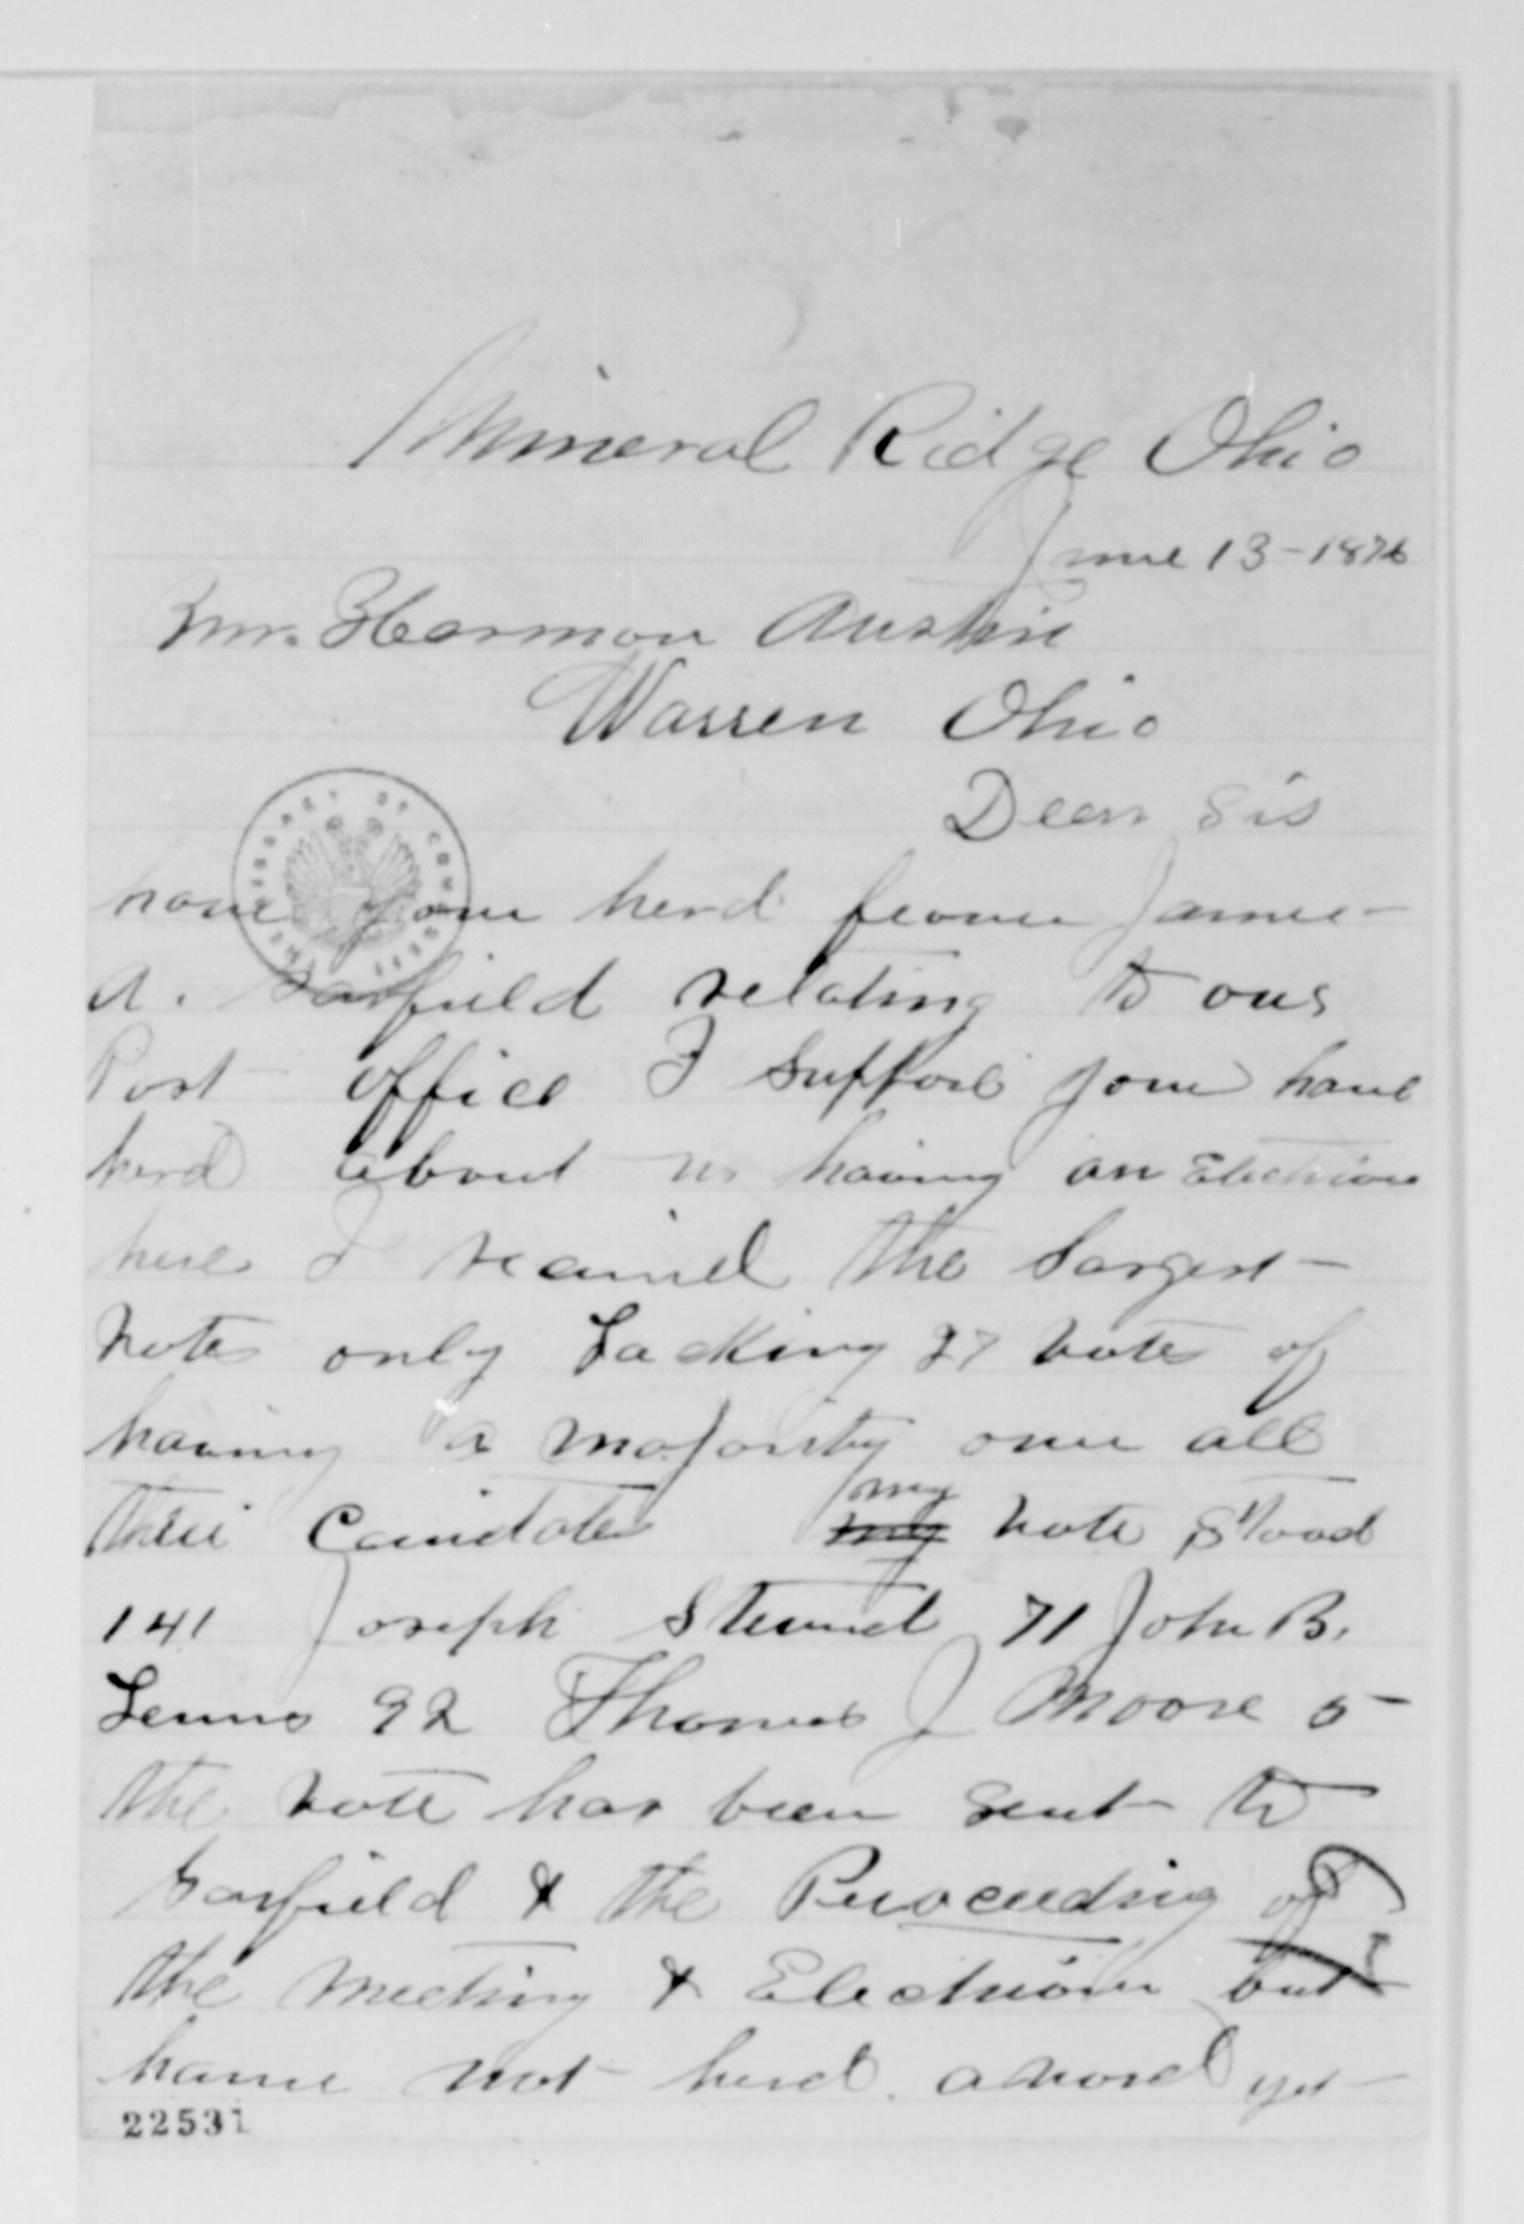 Mineral Ridge Ohio
June 13-1876
Mr. Harmon Austin
Warren Ohio
Dear Sir
have you herd from James
A. Garfield relating to our
Post office I suppose you have
herd about us having an Election
here I recived the largest
vote only Lacking 27 vote of
having a majority over all
their Canidates my my vote stood
141 Joseph 71 John B.
92 Thomas J Moore 5
the vote has been sent to
Garfield & the Proceeding of
the meeting & Election but
have not herd a word yet
LIBRARY OF CONGRESS
22531